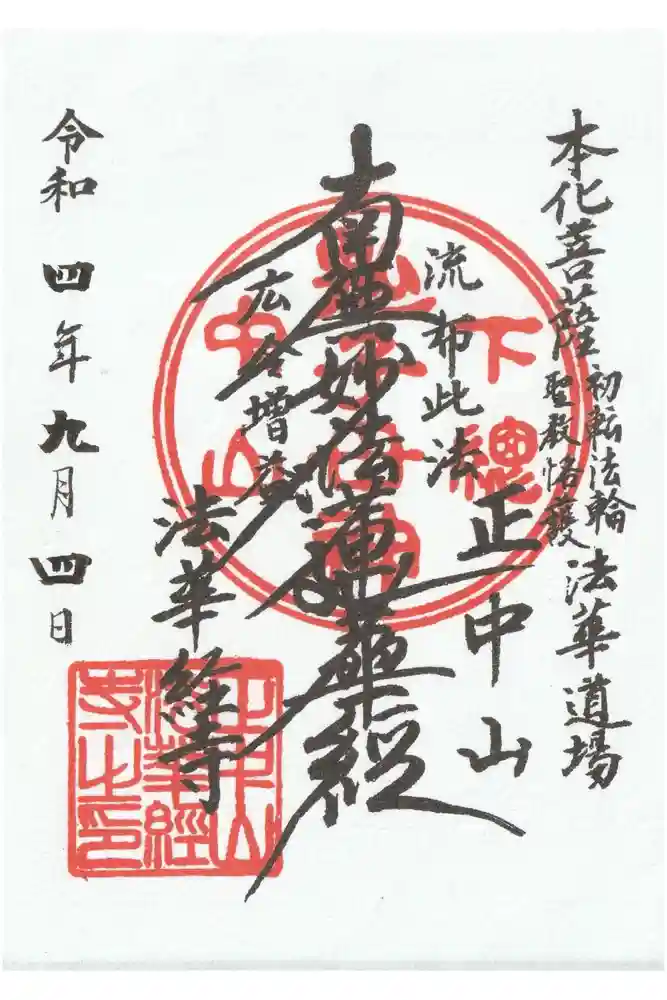 本化菩薩
初転法輪
聖教恪護
法華道場
正中山
流布此法
南無妙法蓮華経
広令増益
法華経寺
令和 四年九月四日
下總
中山
正中山
法華經
寺之印